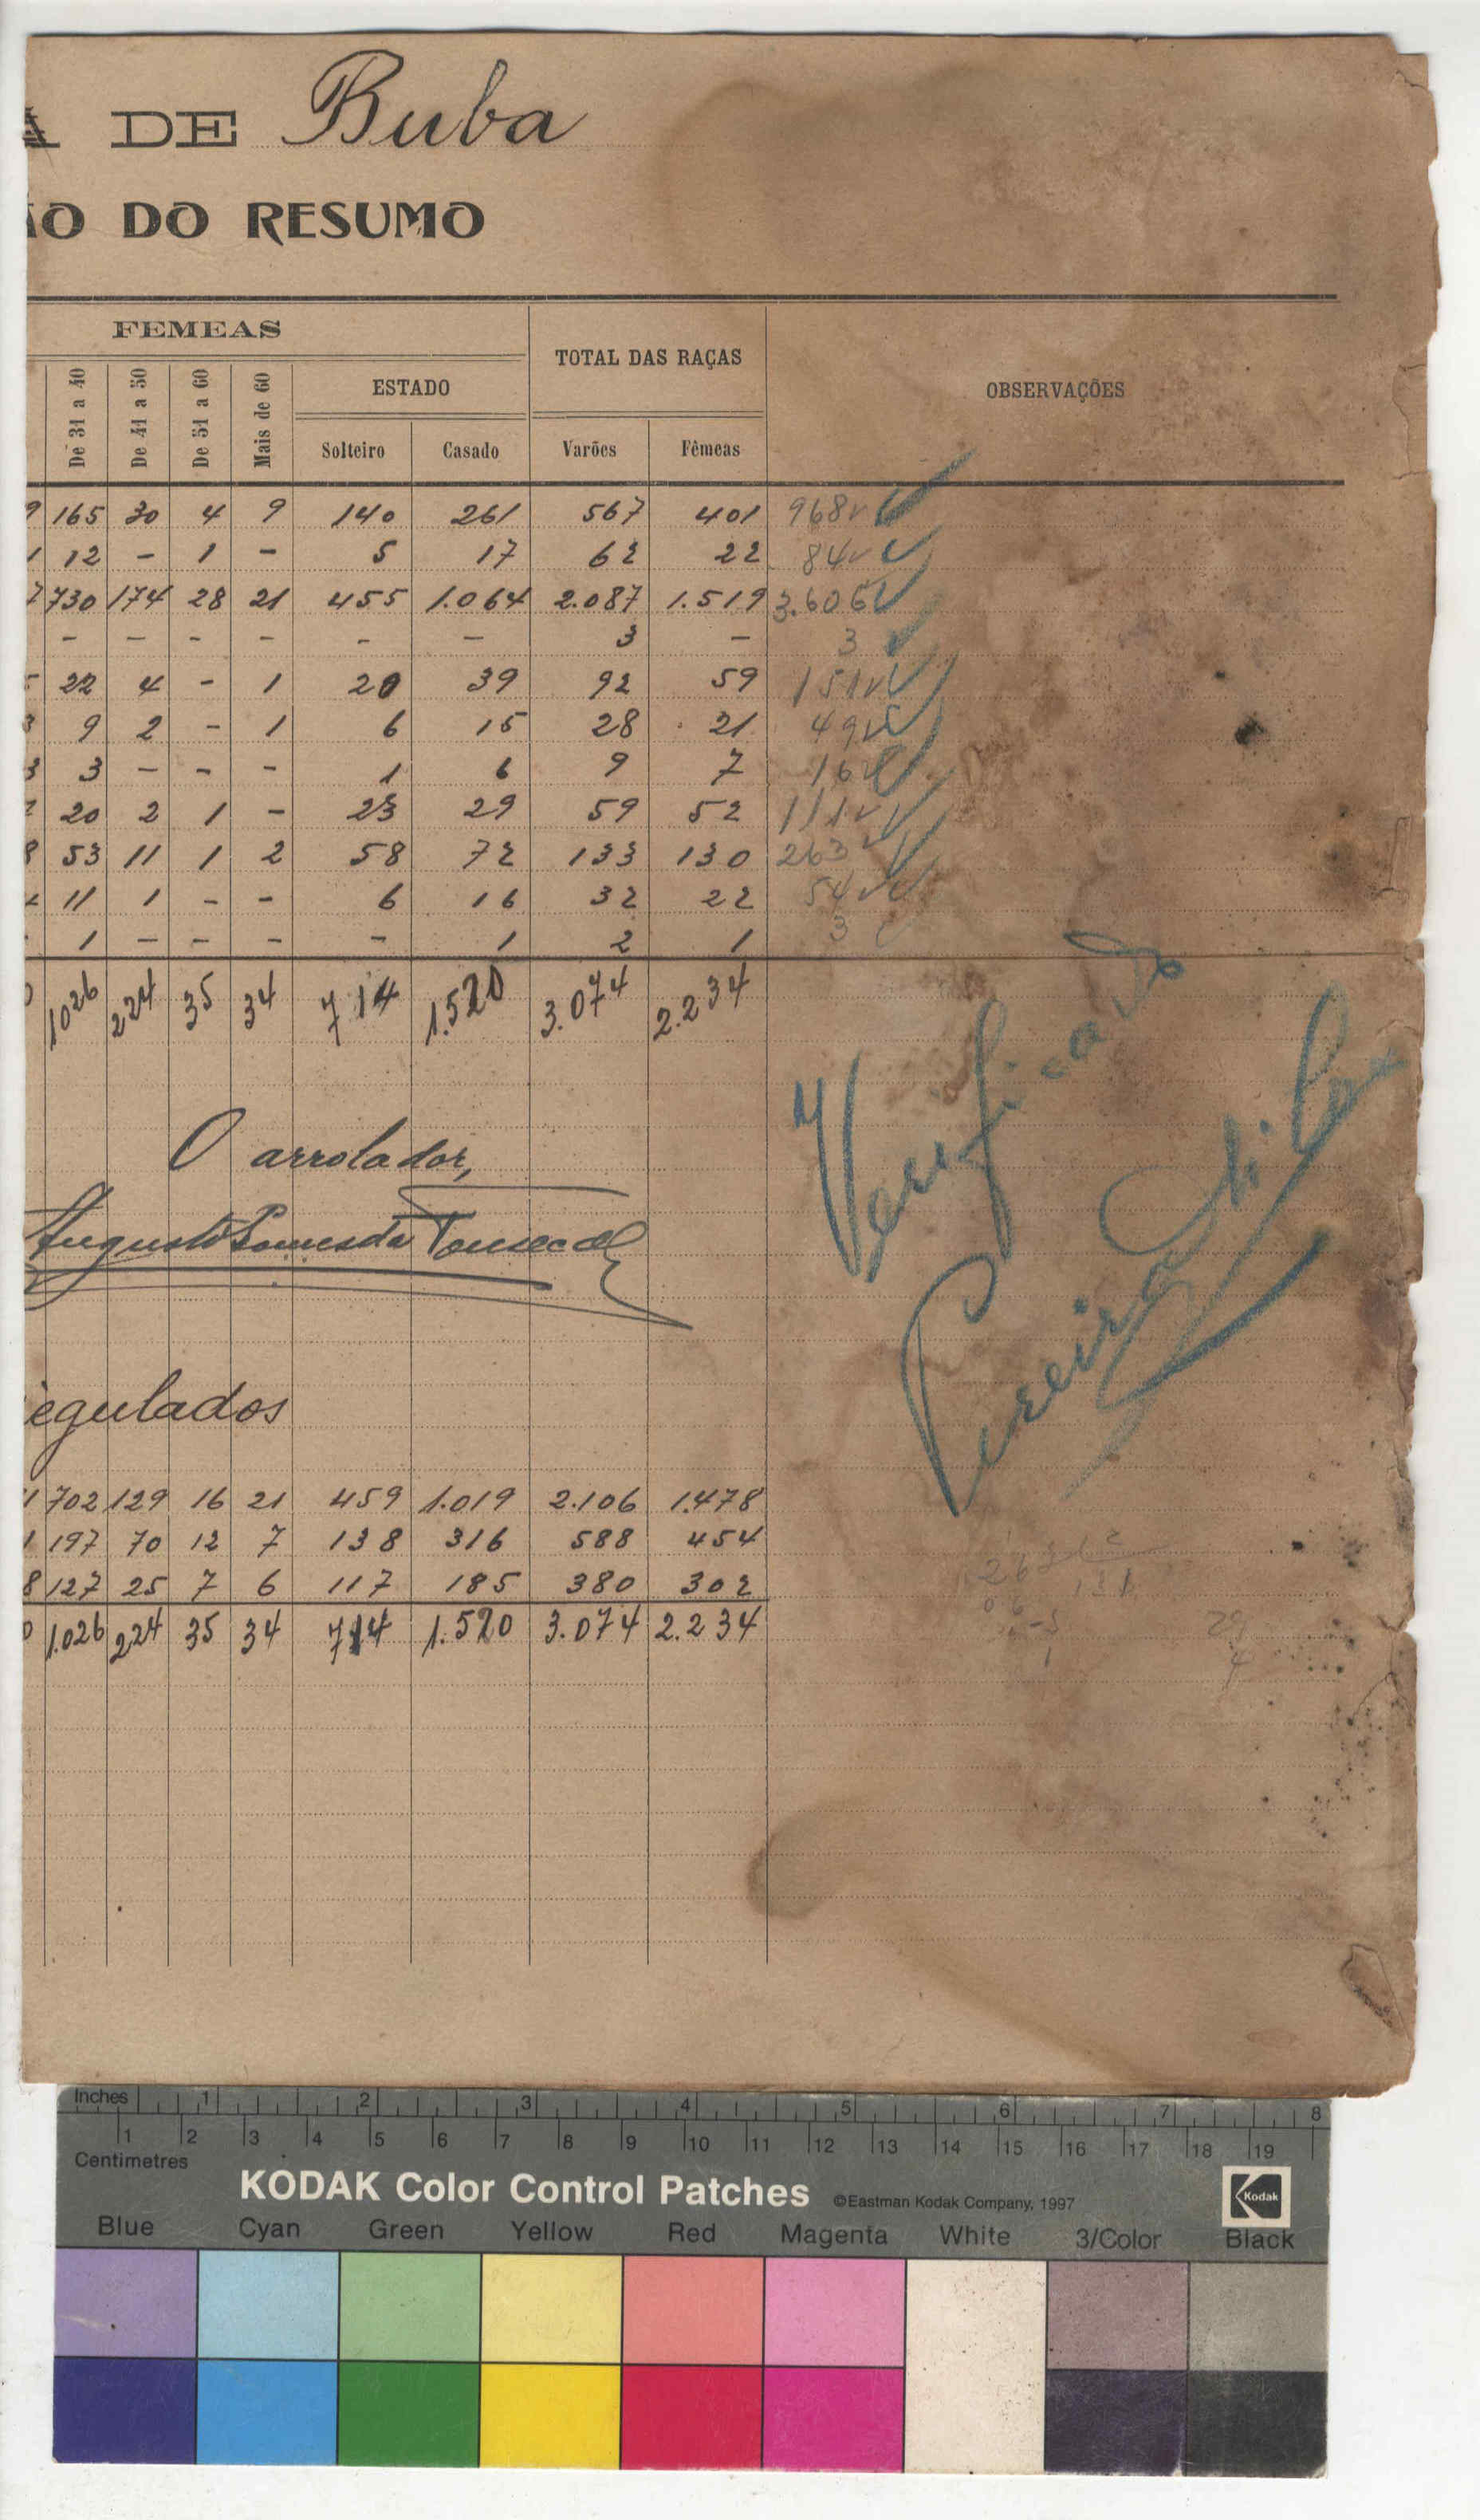 DE Buba
ÃO DO RESUMO
FEMEAS
TOTAL DAS RAÇAS
OBSERVAÇÕES
De 31 a 40 De 41 a 50 De 51 a 60 Mais de 60
ESTADO
Solteiro Casado Varões Fêmeas
9 165 30 4 9 140 261 567 401 968
1 12 - 1 - 5 17 62 22 84
7 730 174 28 21 455 1.064 2.087 1.519 3.606
- - - - - - 3 - 3
5 22 4 - 1 20 39 92 59 151
3 9 2 - 1 6 15 28 21 49
3 3 - - - 1 6 9 7 16
2 20 2 1 - 23 29 59 52 111
8 53 11 1 2 58 72 133 130 263
11 1 - - 6 16 32 22 54
1 - - - - 1 2 1 3
0 1026 224 35 34 714 1.520 3.074 2.234
Verificado
O arrolador,
Augusto Gomes da Fonseca
Pereira
egulados
1 702 129 16 21 459 1.019 2.106 1.478
1 197 70 12 7 138 316 588 454
8 127 25 7 6 117 185 380 302
0 1.026 224 35 34 714 1.520 3.074 2.234
Inches 1 2 3 4 5 6 7 8
1 2 3 4 5 6 7 8 9 10 11 12 13 14 15 16 17 18 19
Centimetres
KODAK Color Control Patches ©Eastman Kodak Company, 1997 Kodak
Blue Cyan Green Yellow Red Magenta White 3/Color Black